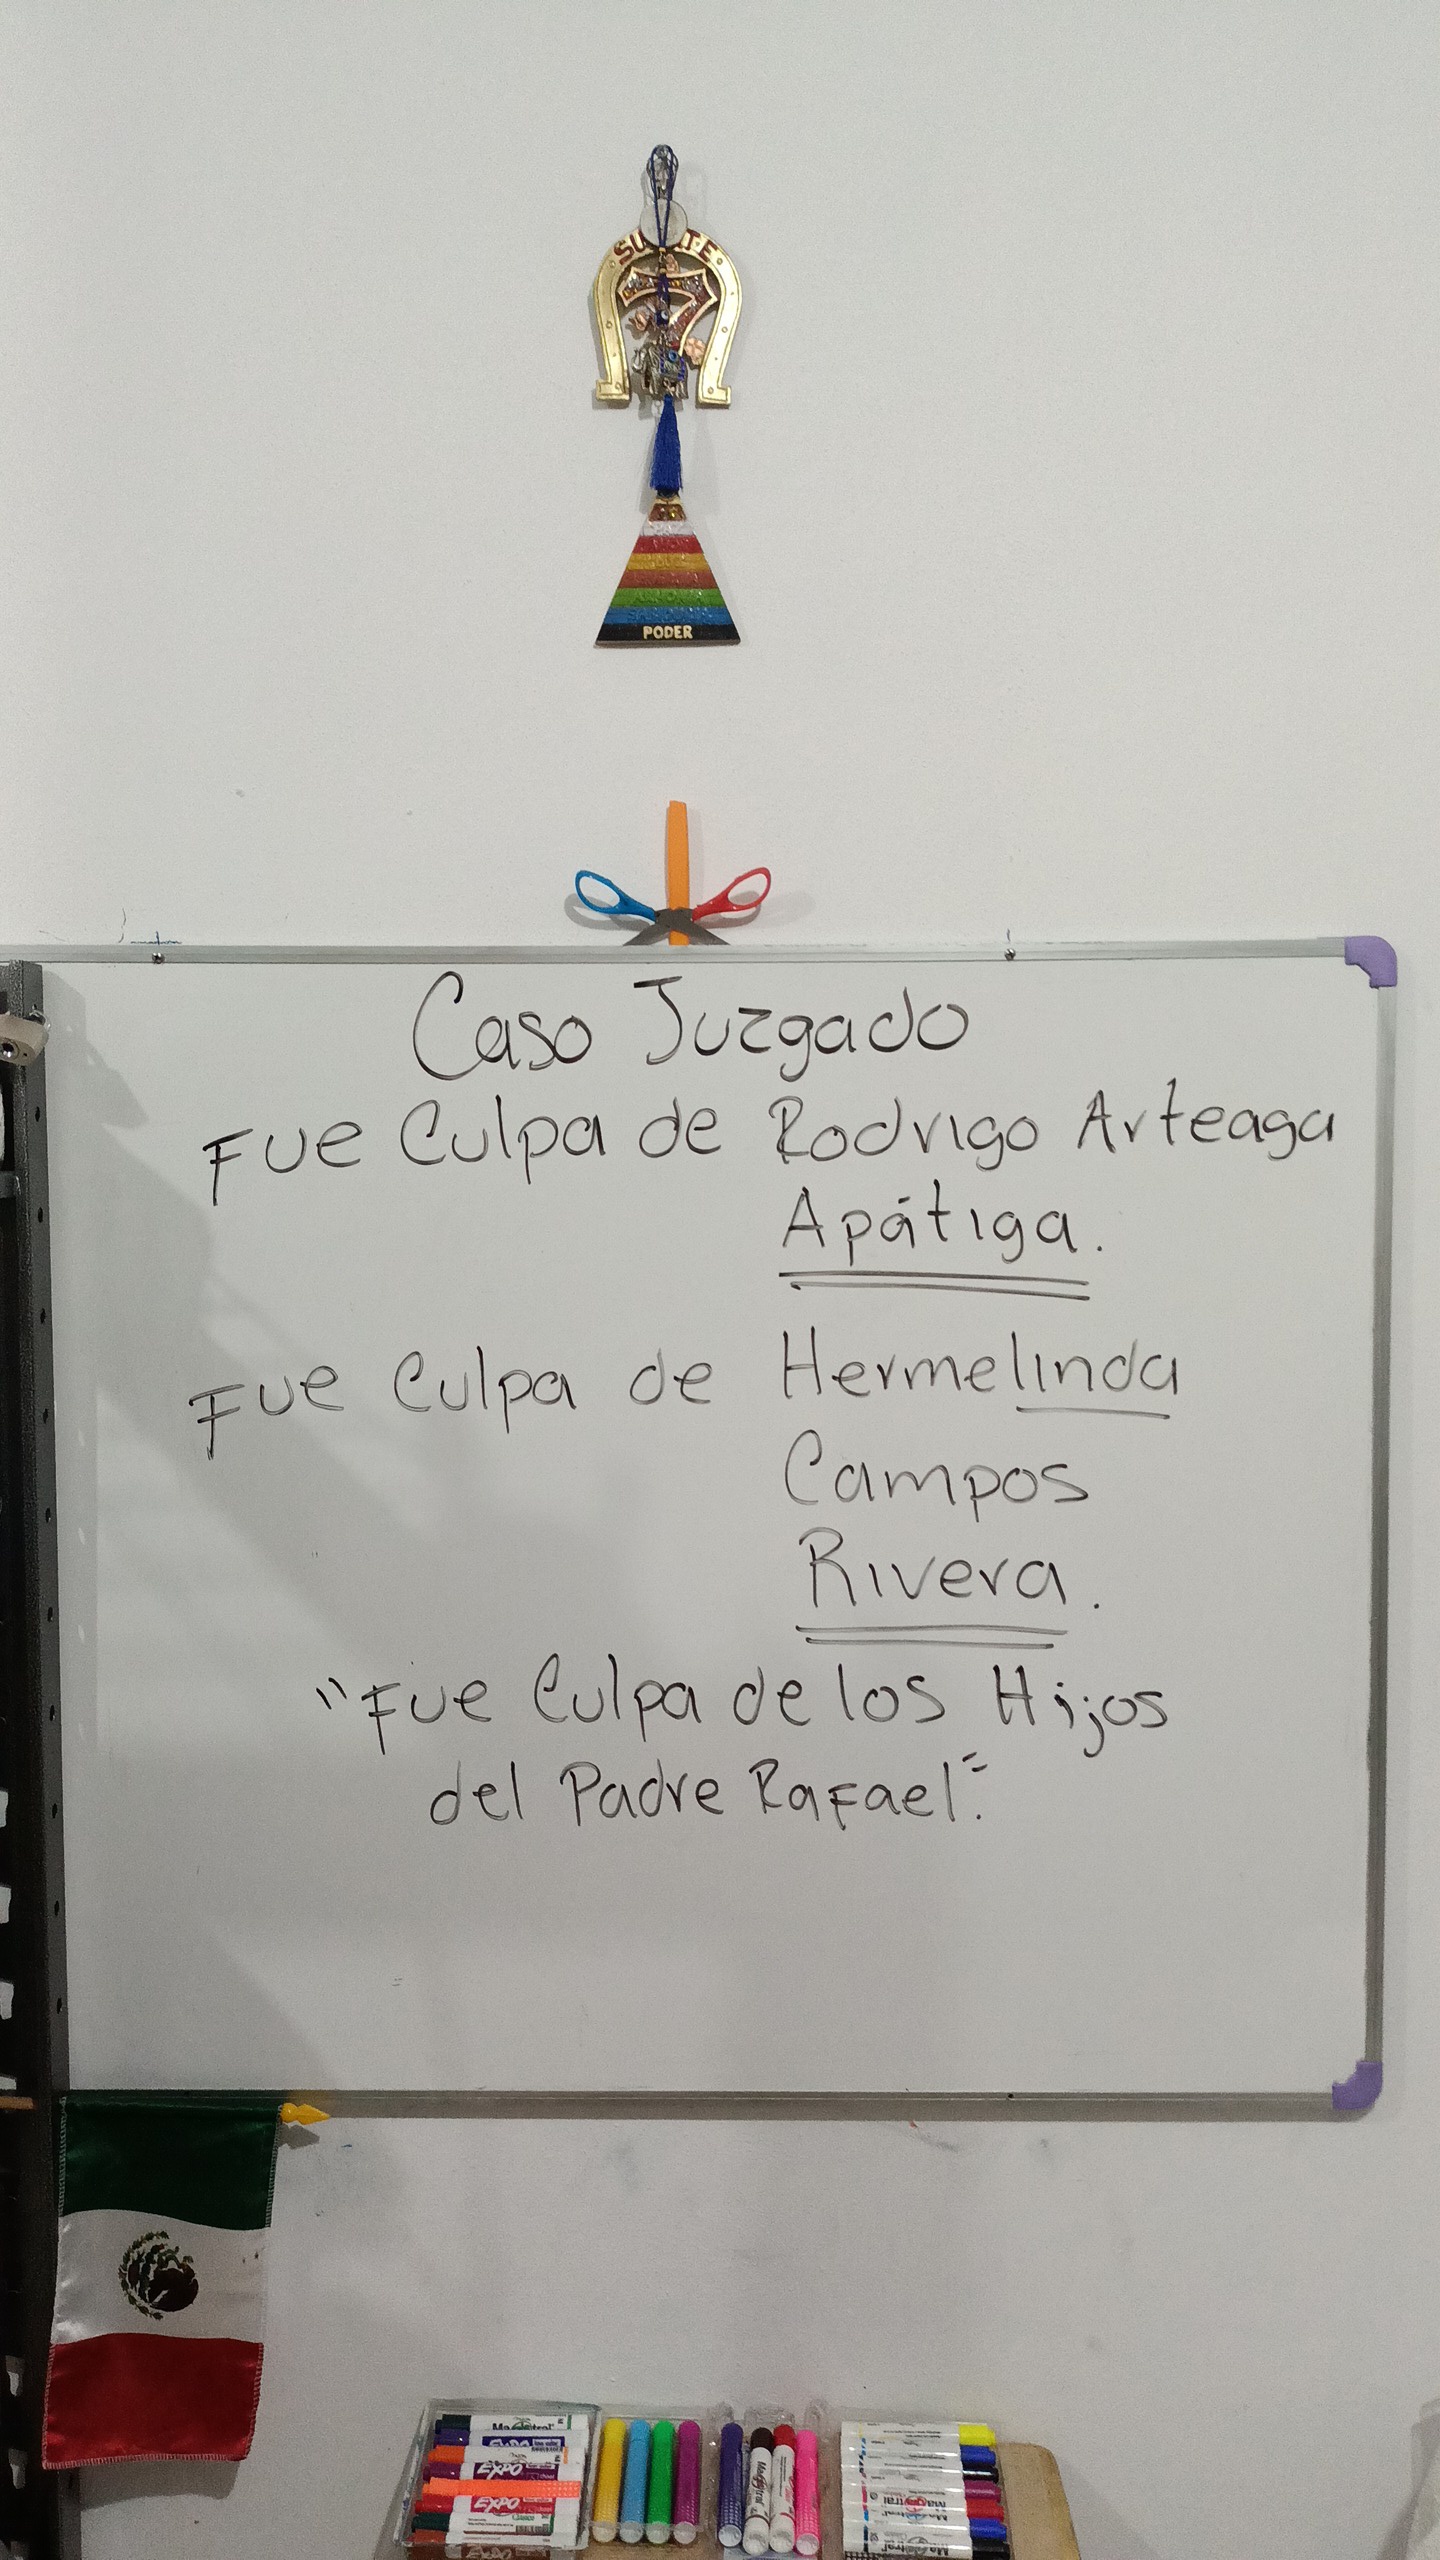 SUERTE
7
PODER
Caso Juzgado
Fue Culpa de Rodrigo Arteaga
Apátiga.
Fue Culpa de Hermelinda
Campos
Rivera.
"Fue Culpa de los Hijos
del Padre Rafael".
Magistral
EXPO
EXPO
EXPO
EXPO
Magistral
Magistral
Magistral